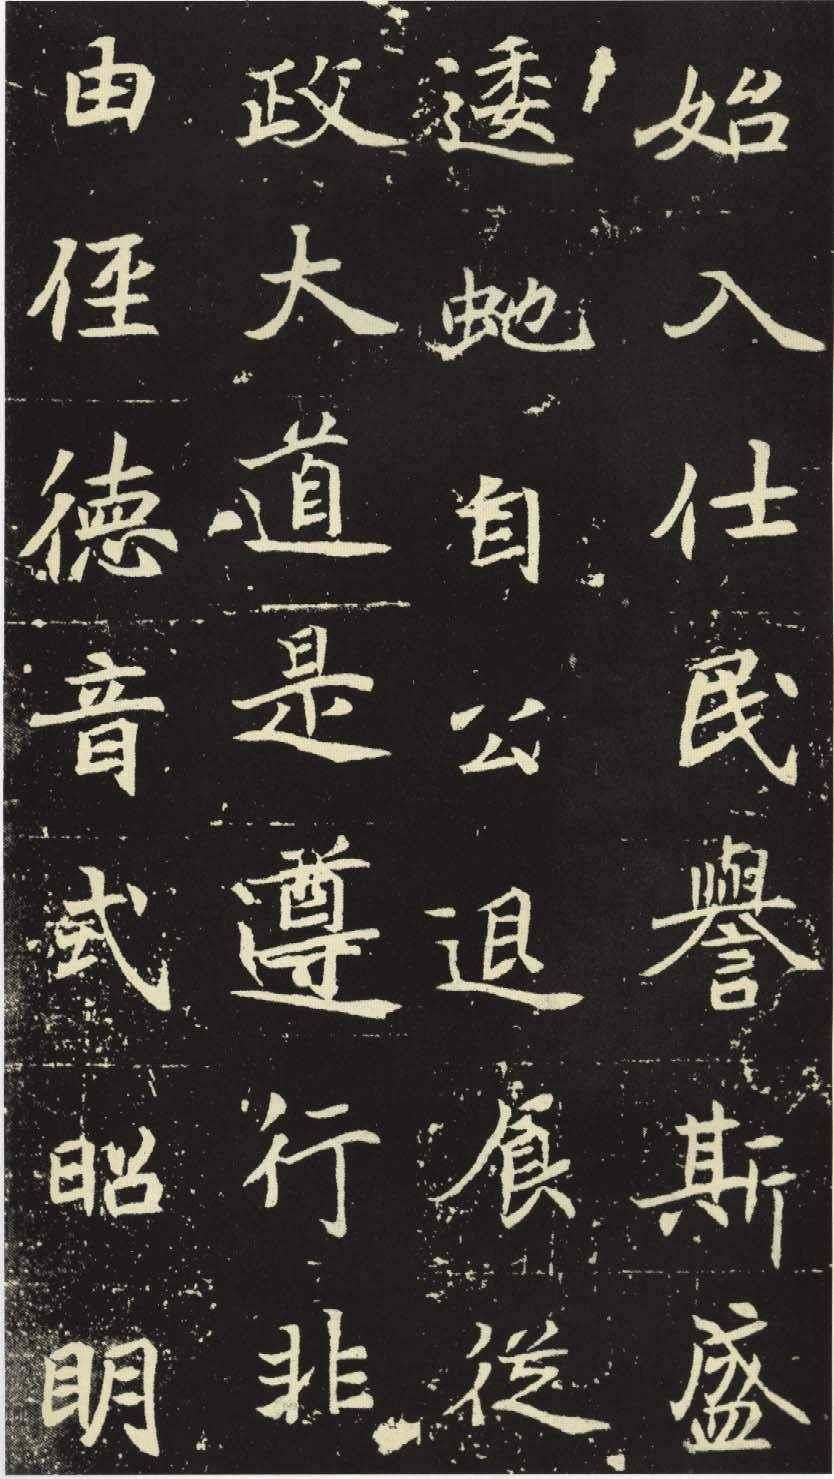 始入仕民譽斯盛
逶虵自公退食從
政大道是遵行非
由径德音式昭明